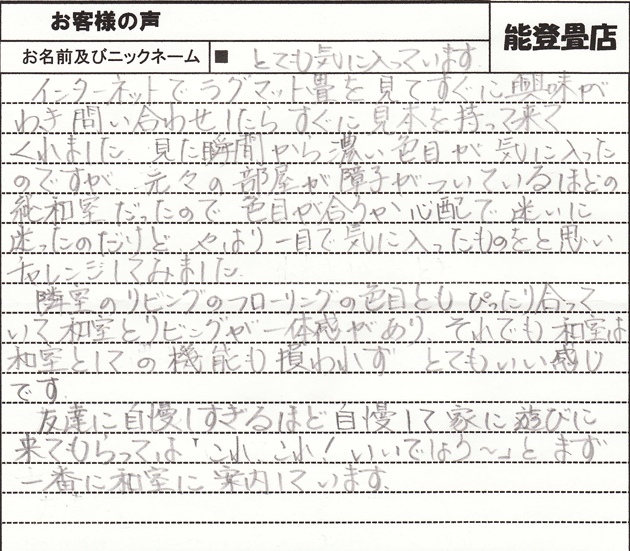 お客様の声
能登畳店
お名前及びニックネーム ■ とても気に入っています
インターネットでラグマット畳を見てすぐに興味が
わき問い合わせしたらすぐに見本を持って来て
くれました。見た瞬間から濃い色目が気に入った
のですが、元々の部屋が障子がついているほどの
純和室だったので色目が合うか心配で迷いに
迷ったのだけど、やはり一目で気に入ったものをと思い
チャレンジしてみました。
隣室のリビングのフローリングの色目ともぴったり合って
いて和室とリビングが一体感があり、それでも和室は
和室としての機能も損われず とてもいい感じ
です。
友達に自慢しすぎるほど自慢して家に遊びに
来てもらっては「これ、これ！いいでしょう〜」とまず
一番に和室に案内しています。